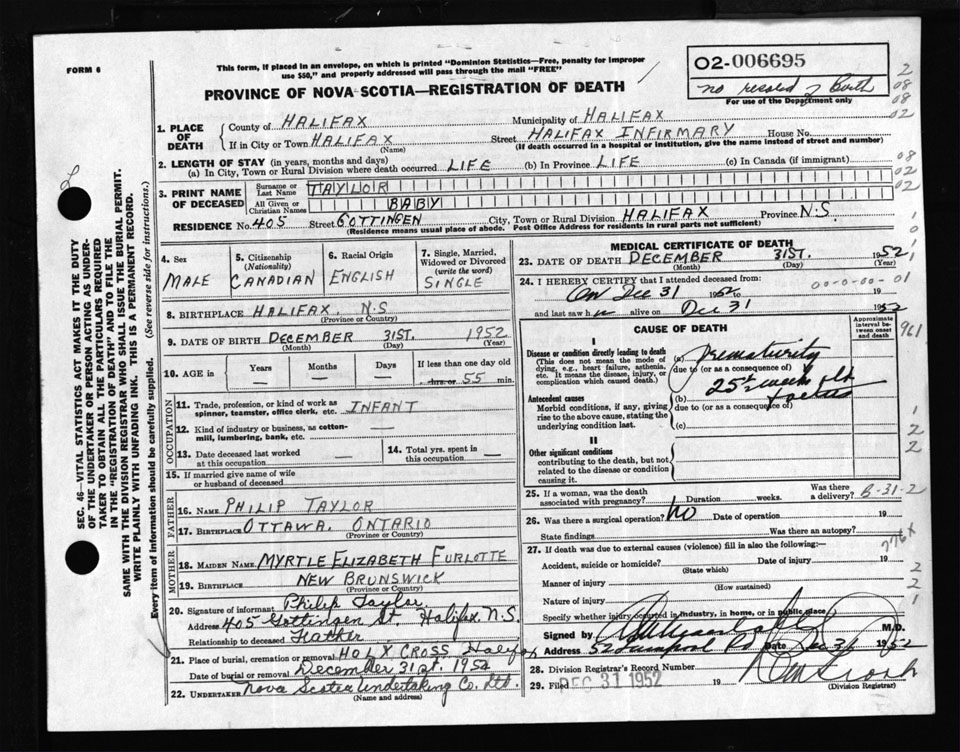 FORM 6
This form, if placed in an envelope, on which is printed "Dominion Statistics—Free, penalty for improper
use $50," and properly addressed will pass through the mail "FREE"
PROVINCE OF NOVA SCOTIA—REGISTRATION OF DEATH
02-006695
no record of Birth
For use of the Department only
2
08
08
02
1. PLACE OF DEATH
County of HALIFAX Municipality of HALIFAX
If in City or Town HALIFAX Street HALIFAX INFIRMARY House No.
(Name) (If death occurred in a hospital or institution, give the name instead of street and number)
2. LENGTH OF STAY (in years, months and days)
(a) In City, Town or Rural Division where death occurred LIFE (b) In Province LIFE (c) In Canada (if immigrant)
08
02
02
3. PRINT NAME OF DECEASED
Surname or Last Name TAYLOR
All Given or Christian Names BABY
RESIDENCE No. 405 Street GOTTINGEN City, Town or Rural Division HALIFAX Province N.S.
(Residence means usual place of abode. Post Office Address for residents in rural parts not sufficient)
4. Sex
MALE
5. Citizenship (Nationality)
CANADIAN
6. Racial Origin
ENGLISH
7. Single, Married, Widowed or Divorced (write the word)
SINGLE
8. BIRTHPLACE HALIFAX, N.S
(Province or Country)
9. DATE OF BIRTH DECEMBER 31ST. 1952
(Month) (Day) (Year)
10. AGE in Years Months Days If less than one day old
— — — hrs. or 55 min.
OCCUPATION
11. Trade, profession or kind of work as
spinner, teamster, office clerk, etc. INFANT
12. Kind of industry or business, as cotton-
mill, lumbering, bank, etc. —
13. Date deceased last worked
at this occupation —
14. Total yrs. spent in
this occupation —
15. If married give name of wife
or husband of deceased
FATHER
16. NAME PHILIP TAYLOR
17. BIRTHPLACE OTTAWA, ONTARIO
(Province or Country)
MOTHER
18. MAIDEN NAME MYRTLE ELIZABETH FURLOTTE
19. BIRTHPLACE NEW BRUNSWICK
(Province or Country)
20. Signature of informant Philip Taylor
Address 405 Gottingen St. Halifax N.S.
Relationship to deceased Father
21. Place of burial, cremation or removal HOLY CROSS Halifax
Date of burial or removal December 31st. 1952
22. UNDERTAKER Nova Scotia Undertaking Co. Ltd.
(Name and address)
MEDICAL CERTIFICATE OF DEATH
23. DATE OF DEATH DECEMBER 31ST. 1952
(Month) (Day) (Year)
24. I HEREBY CERTIFY that I attended deceased from:
On Dec 31 1952 to 19
00-0-00-01
and last saw h alive on Dec 31 1952
CAUSE OF DEATH
Approximate interval between onset and death
961
I
Disease or condition directly leading to death
(This does not mean the mode of
dying, e.g., heart failure, asthenia,
etc. It means the disease, injury, or
complication which caused death.)
(a) Prematurity
due to (or as a consequence of)
Antecedent causes
Morbid conditions, if any, giving
rise to the above cause, stating the
underlying condition last.
(b) 25½ weeks old foetus
due to (or as a consequence of)
(c)
II
Other significant conditions
contributing to the death, but not
related to the disease or condition
causing it.
25. If a woman, was the death
associated with pregnancy? Duration weeks. Was there a delivery? B-31-2
26. Was there a surgical operation? No Date of operation 19
State findings Was there an autopsy?
27. If death was due to external causes (violence) fill in also the following:—
776x
Accident, suicide or homicide? Date of injury 19
(State which)
Manner of injury
(How sustained)
Nature of injury
Specify whether injury occurred in industry, in home, or in public place
Signed by M.D.
Address 52 Date Dec 31 1952
28. Division Registrar's Record Number
29. Filed DEC 31 1952 19
(Division Registrar)
SEC. 46—VITAL STATISTICS ACT MAKES IT THE DUTY
OF THE UNDERTAKER OR PERSON ACTING AS UNDER-
TAKER TO OBTAIN ALL THE PARTICULARS REQUIRED
IN THE "REGISTRATION OF DEATH" AND TO FILE THE
SAME WITH THE DIVISION REGISTRAR WHO SHALL ISSUE THE BURIAL PERMIT.
WRITE PLAINLY WITH UNFADING INK. THIS IS A PERMANENT RECORD.
Every item of information should be carefully supplied. (See reverse side for instructions.)